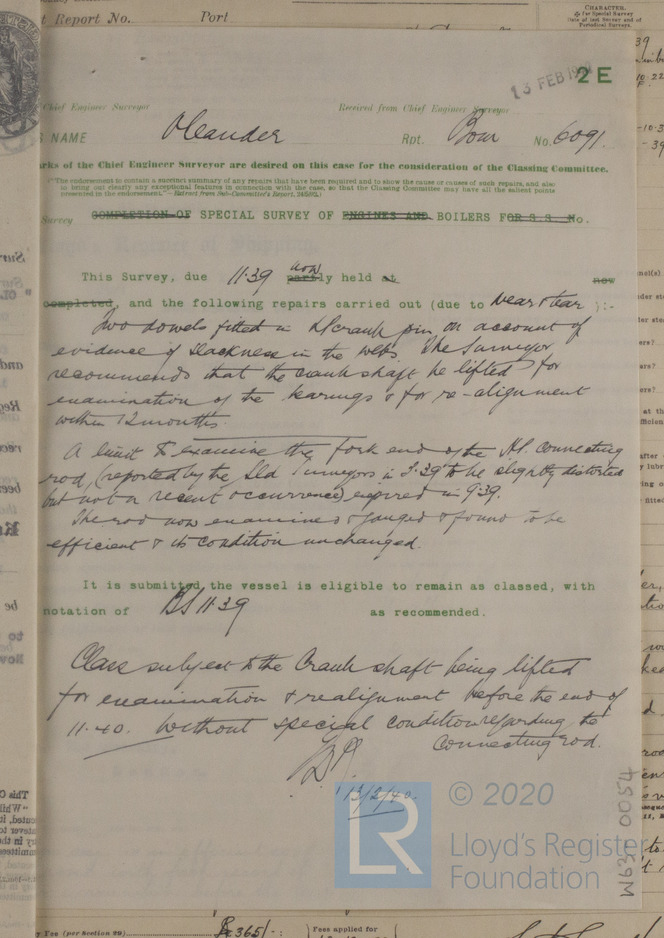 t Report No. Port
CHARACTER.
for Special Survey
Date of last Survey and of
Periodical Surveys.
13 FEB 19
2 E
Chief Engineer Surveyor Received from Chief Engineer Surveyor
S NAME Oleander Rpt. Bom No. 6091.
arks of the Chief Engineer Surveyor are desired on this case for the consideration of the Classing Committee.
"The endorsement to contain a succinct summary of any repairs that have been required and to show the cause or causes of such repairs, and also
to bring out clearly any exceptional features in connection with the case, so that the Classing Committee may have all the salient points
presented in the endorsement."—Extract from Sub-Committee's Report,
Survey COMPLETION OF SPECIAL SURVEY OF ENGINES AND BOILERS FOR S.S. No.
This Survey, due 11.39 now partly held at now
completed, and the following repairs carried out (due to wear & tear ):-
Two dowels fitted in crank pin on account of
evidence of slackness in the webs. The Surveyor
recommends that the crank shaft be lifted for
examination of the bearings & for re-alignment
within 12 months.
A limit to examine the fork end of the H.P. connecting
rod, (reported by the Sld Surveyors in 3.39 to be slightly distorted
but not a recent occurrence) expired in 9.39.
The rod now examined & gauged & found to be
efficient & its condition unchanged.
It is submitted the vessel is eligible to remain as classed, with
notation of BS 11.39 as recommended.
Class subject to the Crank shaft being lifted
for examination & realignment before the end of
11.40. Without special condition regarding the
connecting rod.
13/2/40.
© 2020
LR
Lloyd's Register
Foundation
W630 0054
y Fee (per Section 29) Rs 365/- : Fees applied for